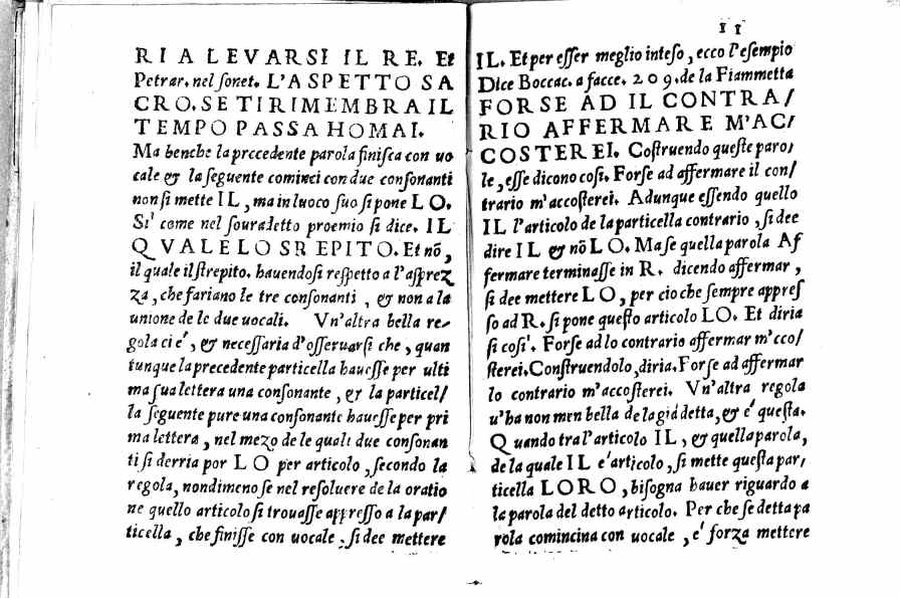 RIA LEVARSI IL RE. Et
Petrar. nel sonet. L'ASPETTO SA
CRO. SE TI RIMEMBRA IL
TEMPO PASSA HOMAI.
Ma benche la prcedente parola finisca con uo
cale & la seguente cominci con due consonanti
non si mette IL, ma in luoco suo si pone LO.
Si' come nel souradetto proemio si dice. IL
QVALE LO SREPITO. Et nō,
il quale il strepito. hauendosi respetto a l'asprez
za, che fariano le tre consonanti, & non a la
unione de le due uocali. Vn'altra bella re-
gola ci e', & necessaria d'osseruarsi che, quan
tunque la precedente particella hauesse per ulti
ma sua lettera una consonante, & la particel/
la seguente pure una consonante hauesse per pri
ma lettera, nel mezo de le quali due consonan
ti si derria por LO per articolo, secondo la
regola, nondimeno se nel resoluere de la oratio
ne quello articolo si trouasse appresso a la par/
ticella, che finisse con uocale, si dee mettere
11
IL. Et per esser meglio inteso, ecco l'esempio
Dice Boccac. a facce. 209. de la Fiammetta
FORSE AD IL CONTRA/
RIO AFFERMARE M'AC/
COSTEREI. Costruendo queste paro/
le, esse dicono cosi. Forse ad affermare il con/
trario m'accosterei. Adunque essendo quello
IL l'articolo de la particella contrario, si dee
dire IL & nō LO. Ma se quella parola Af
fermare terminasse in R. dicendo affermar,
si dee mettere LO, per cio che sempre appres
so ad R. si pone questo articolo LO. Et diria
si cosi'. Forse ad lo contrario affermar m'cco/
sterei. Construendolo, diria. Forse ad affermar
lo contrario m'accosterei. Vn'altra regola
u'ha non men bella de la gid detta, & e' questa.
Quando tra l'articolo IL, & quella parola,
de la quale IL e' articolo, si mette questa par/
ticella LORO, bisogna hauer riguardo a
la parola del detto articolo. Per che se detta pa
rola comincina con uocale, e' forza mettere